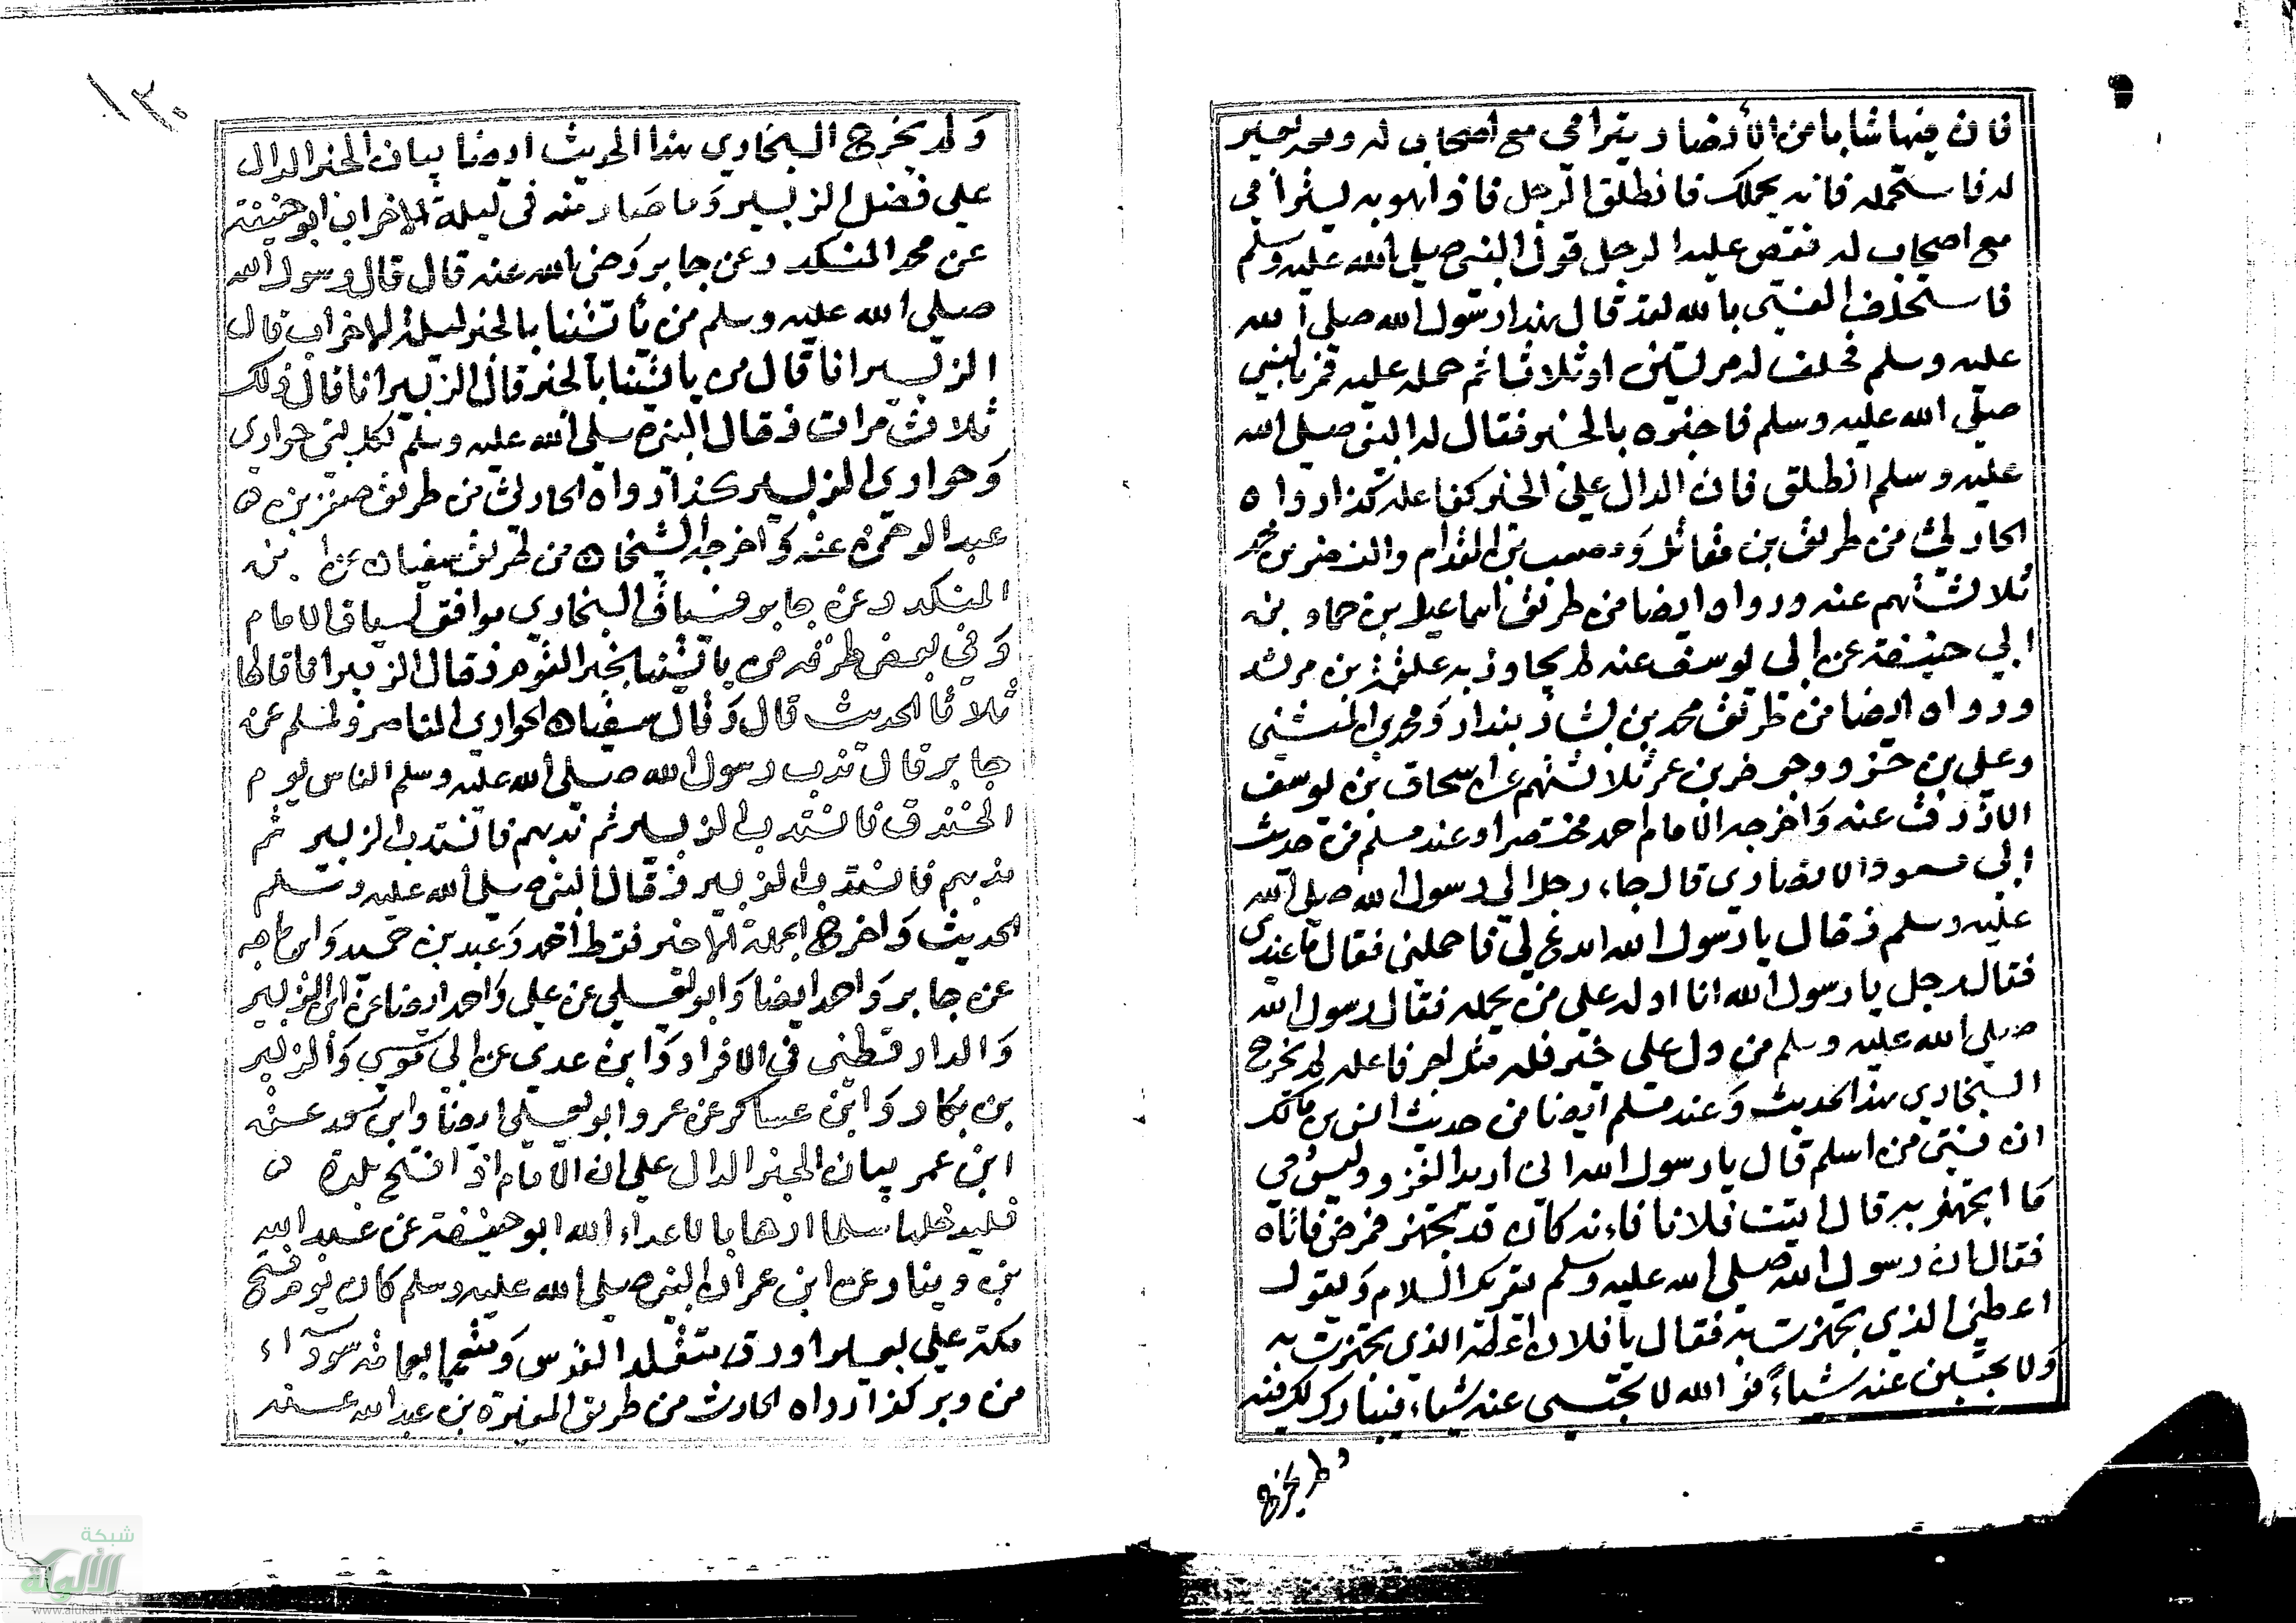 فان فيها شابا من الأنصار يترامى مع اصحاب له ومعه بعير
له فاستحمله فانه يحملك فانطلق الرجل فاذا هو به يترامى
مع اصحاب له فقص عليه الرجل قول النبي صلى الله عليه وسلم
فاستحلف الفتى بالله لقد قال هذا رسول الله صلى الله
عليه وسلم فحلف له مرتين او ثلاثا ثم حمله عليه فمر بالنبي
صلى الله عليه وسلم فاخبره بالخبر فقال له النبي صلى الله
عليه وسلم انطلق فان الدال على الخير كفاعله كذا رواه
الحارثي من طريق بن مقاتل ومصعب بن المقدام والنضر بن محمد
ثلاثتهم عنه ورواه ايضا من طريق اسماعيل بن حماد بن
ابي حنيفة عن ابي يوسف عنه لم يجاوز به علقمة بن مرثد
ورواه ايضا من طريق محمد بن بشار بندار ومحمد بن المثنى
وعلي بن وجعفر بن عمر ثلاثتهم عن اسحاق بن يوسف
الازرق عنه واخرجه الامام احمد مختصرا وعند مسلم من حديث
ابي مسعود الانصاري قال جاء رجل الى رسول الله صلى الله
عليه وسلم فقال يا رسول الله ابدع لي فاحملني فقال ما عندي
فقال رجل يا رسول الله انا ادله على من يحمله فقال رسول الله
صلى الله عليه وسلم من دل على خير فله مثل اجر فاعله لم يخرج
البخاري هذا الحديث وعند مسلم ايضا من حديث انس بن مالك
ان فتى من اسلم قال يا رسول الله اني اريد الغزو وليس معي
ما اتجهز به قال ايت فلانا فانه كان قد تجهز فمرض فاتاه
فقال ان رسول الله صلى الله عليه وسلم يقريك السلام ويقول
اعطني الذي تجهزت به فقال يا فلانة اعطه الذي تجهزت به
ولا تحبسين عنه شياء فوالله لا تحبسي عنه شياء فيبارك لك فيه
ولم يخرج
١٣٠
ولم يخرج البخاري هذا الحديث ايضا بيان الخبر الدال
على فضل الزبير وما صار منه في ليلة الاحزاب ابو حنيفة
عن محمد المنكدر عن جابر رضى الله عنه قال قال رسول الله
صلى الله عليه وسلم من يأتينا بالخبر ليلة الاحزاب قال
الزبير انا قال من ياتينا بالخبر قال الزبير انا قال ذلك
ثلاث مرات فقال النبي صلى الله عليه وسلم لكل نبي حواري
وحواري الزبير كذا رواه الحارثي من طريق بن
عبد الرحمن عنه واخرجه الشيخان من طريق سفيان عن ابن
المنكدر عن جابر وسياق البخاري موافق لسياق الامام
وفي بعض طرقه من ياتينا بخبر القوم فقال الزبير انا قالها
ثلاثا الحديث قال وقال سفيان الحواري الناصر ولمسلم عن
جابر قال ندب رسول الله صلى الله عليه وسلم الناس يوم
الخندق فانتدب الزبير ثم ندبهم فانتدب الزبير ثم
ندبهم فانتدب الزبير فقال النبي صلى الله عليه وسلم
الحديث واخرج الجملة الاخير فقط أحمد وعبد بن حميد وابن ماجه
عن جابر واحمد ايضا وابو يعلى عن علي واحمد ايضا عن ابن الزبير
والدارقطني في الافراد وابن عدي عن ابي موسى والزبير
بن بكار وابن عساكر عن عمر وابو يعلى ايضا وابن سعد عنه
ابن عمر بيان الخبر الدال على ان الامام اذا افتتح بلدة
فليدخلها ارهابا لاعداء الله ابو حنيفة عن عبد الله
بن دينار عن ابن عمر ان النبي صلى الله عليه وسلم كان يوم فتح
مكة على بعير اورق متقلدا القوس ومتعمما بعمامة سوداء
من وبر كذا رواه الحارث من طريق المغيرة بن عبد الله عنه
شبكة
الألوكة
www.alukah.net